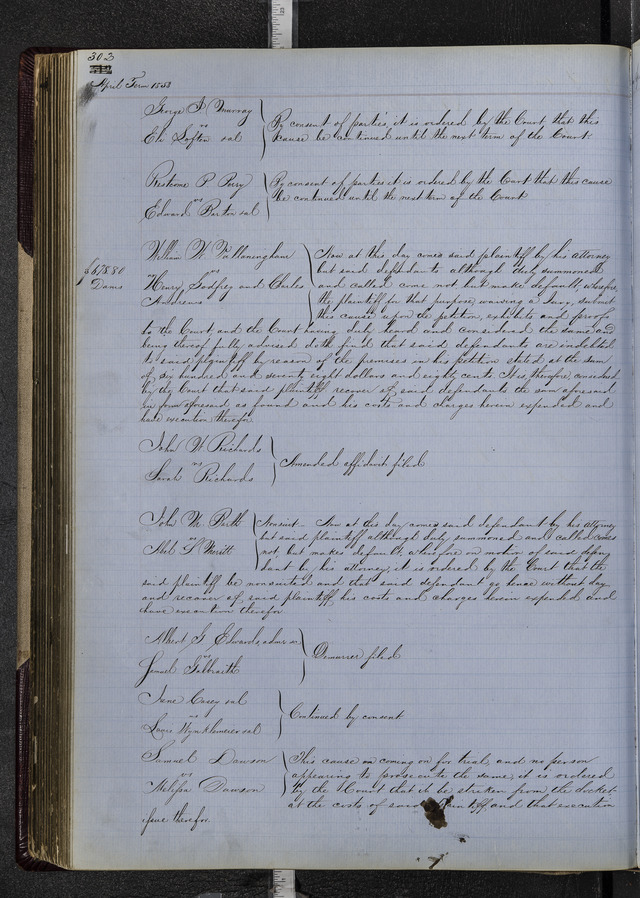 302
April Term 1853
George F. Murray
vs
Eli Lofton et al
By consent of parties, it is ordered by the Court that this
cause be continued until the next term of the Court.
P. Perry
vs
Edward Parton et al
By consent of parties it is ordered by the Court that this cause
be continued until the next term of the Court
$678.80
Dams
William W.
vs
Henry Godfrey and Charles
Andrews
Now at this day comes said plaintiff by his attorney
but said defendants although duly summoned
and called come not but make default, wherefore
the plaintiff for that purpose waiving a Jury, submit
this cause upon the petition, exhibits and proof
to the Court and the Court having duly heard and considered the same and
being thereof fully advised doth find that said defendants are indebted
to said plaintiff by reason of the premises in his petition stated at the sum
of six hundred and seventy eight dollars and eighty cents. It is, therefore, considered
by the Court that said plaintiff recover of said defendants the sum aforesaid
in form aforesaid as found and his costs and charges herein expended and
have execution therefor.
John W Richards
vs
Sarah Richards
Amended affidavit filed
John M.
vs
Abel S Merritt
Nonsuit. Now at this day comes said defendant by his attorney
but said plaintiff although duly summoned and called comes
not, but makes default, wherefore on motion of said defen
dant by his attorney, it is ordered by the Court that the
said plaintiff be nonsuited and that said defendant go hence without day
and recover of said plaintiff his costs and charges herein expended and
have execution therefor
Albert G Edwards, admr &c
vs
Samuel Galbraith
Demurrer filed
Casey et al
vs
Louis et al
Continued by consent
Samuel Dawson
vs
Melissa Dawson
This cause on coming on for trial, and no person
appearing to prosecute the same, it is ordered
by the Court that it be striken from the docket
at the costs of said and that execution
issue therefor.